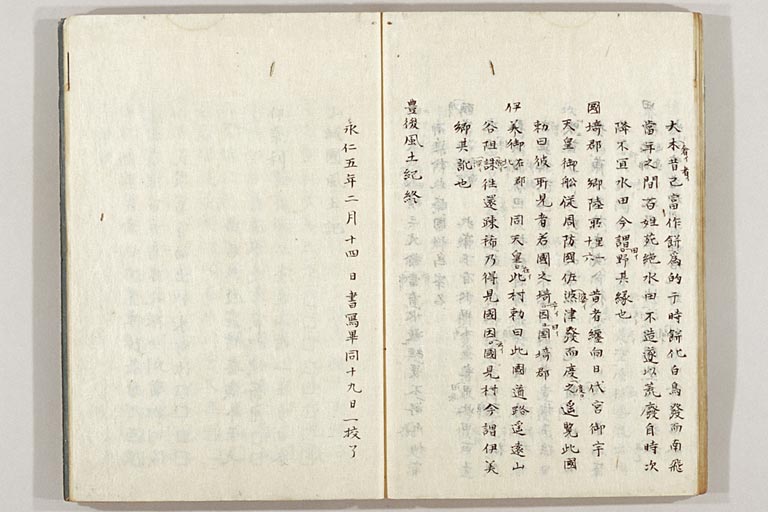 大本昔已富作餅為的于時餅化白鳥發而南飛
當年之間百姓死絶水田不造遂以荒廢自時次
降不宜水田今謂野其縁也
國埼郡 郷陸所 里十六 昔者纏向日代宮御宇
天皇御船従周防國佐婆津發而度之遥覧此國
勅曰彼所見者若國之埼因國埼郡
伊美郷 在郡 同天皇此村勅曰此國道路遥遠山
谷阻深往還疎稀乃得見國因國見村今謂伊美
郷其訛也
豊後風土紀終
永仁五年二月十四日書寫畢同十九日一校了